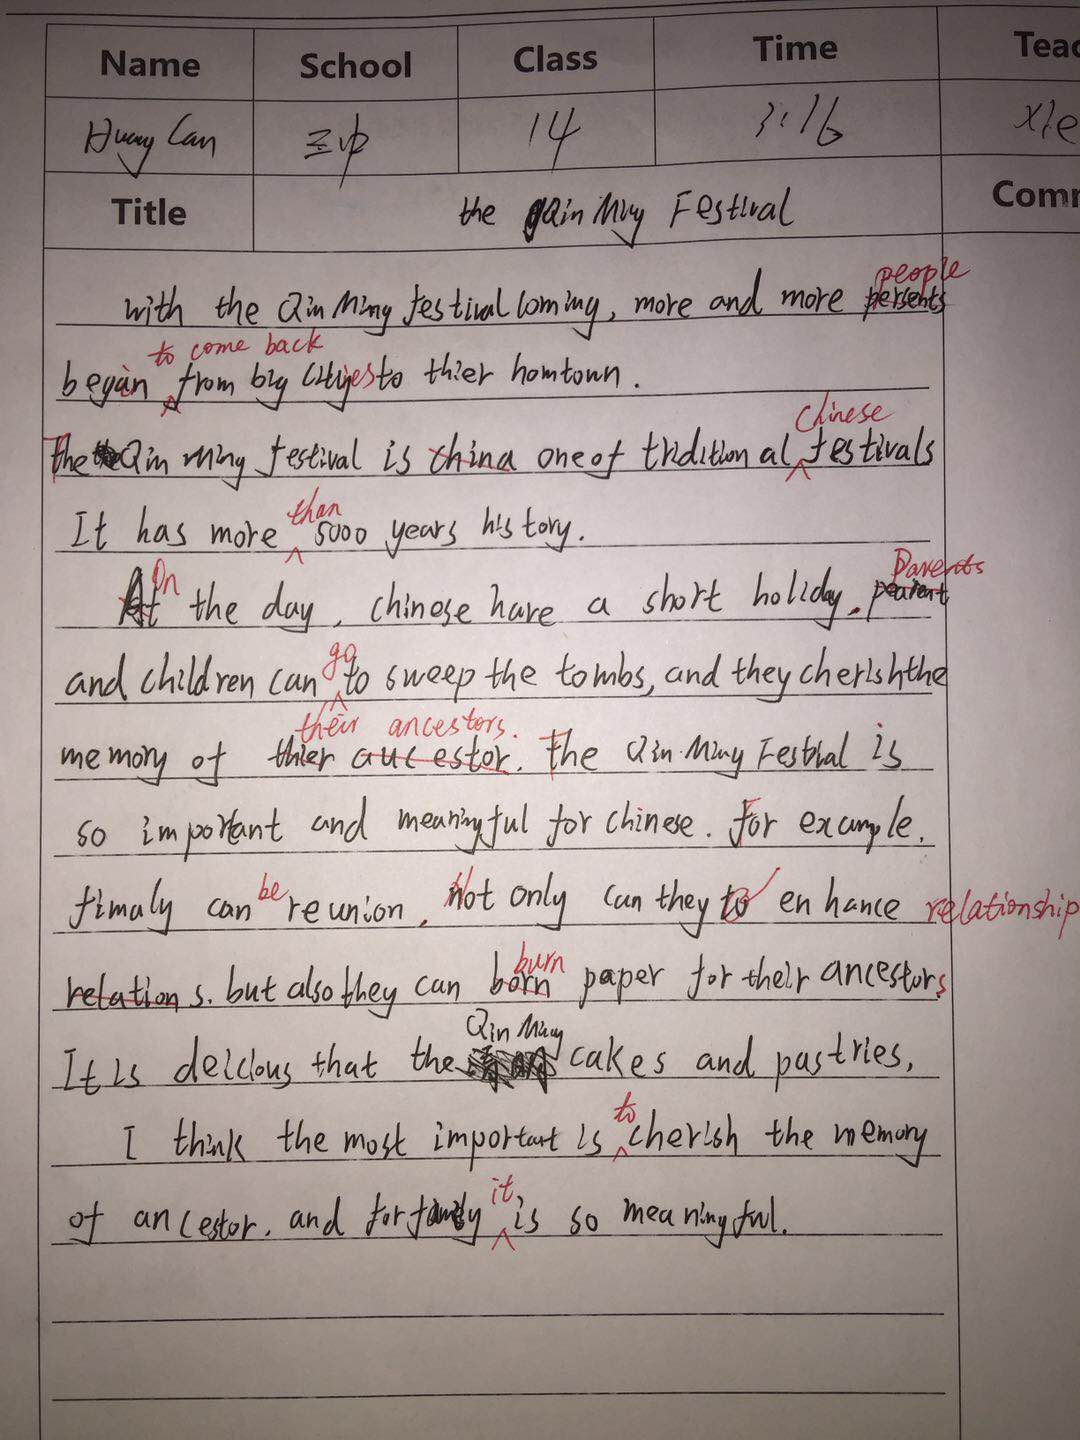 Name School Class Time Teac
Huang Can 三中 14 3.16 Xie
Title the Qin Ming Festival Comm
people
with the Qin Ming festival coming, more and more persents
to come back
began from big cityies to thier homtown.
Chinese
The Qin Ming festival is china one of triditional festivals
than
It has more 5000 years history.
On Parents
At the day, chinese have a short holiday. parent
go
and children can to sweep the tombs, and they cherish the
their ancestors.
memory of thier aucestor. The Qin Ming Festival is
so important and meaningful for chinese. For example,
be
fimaly can reunion. Not only can they to enhance relationship
burn
relations. but also they can born paper for their ancestors
Qin Ming
It is delcious that the cakes and pastries,
to
I think the most important is cherish the memory
it
of ancestor. and for family is so meaningful.